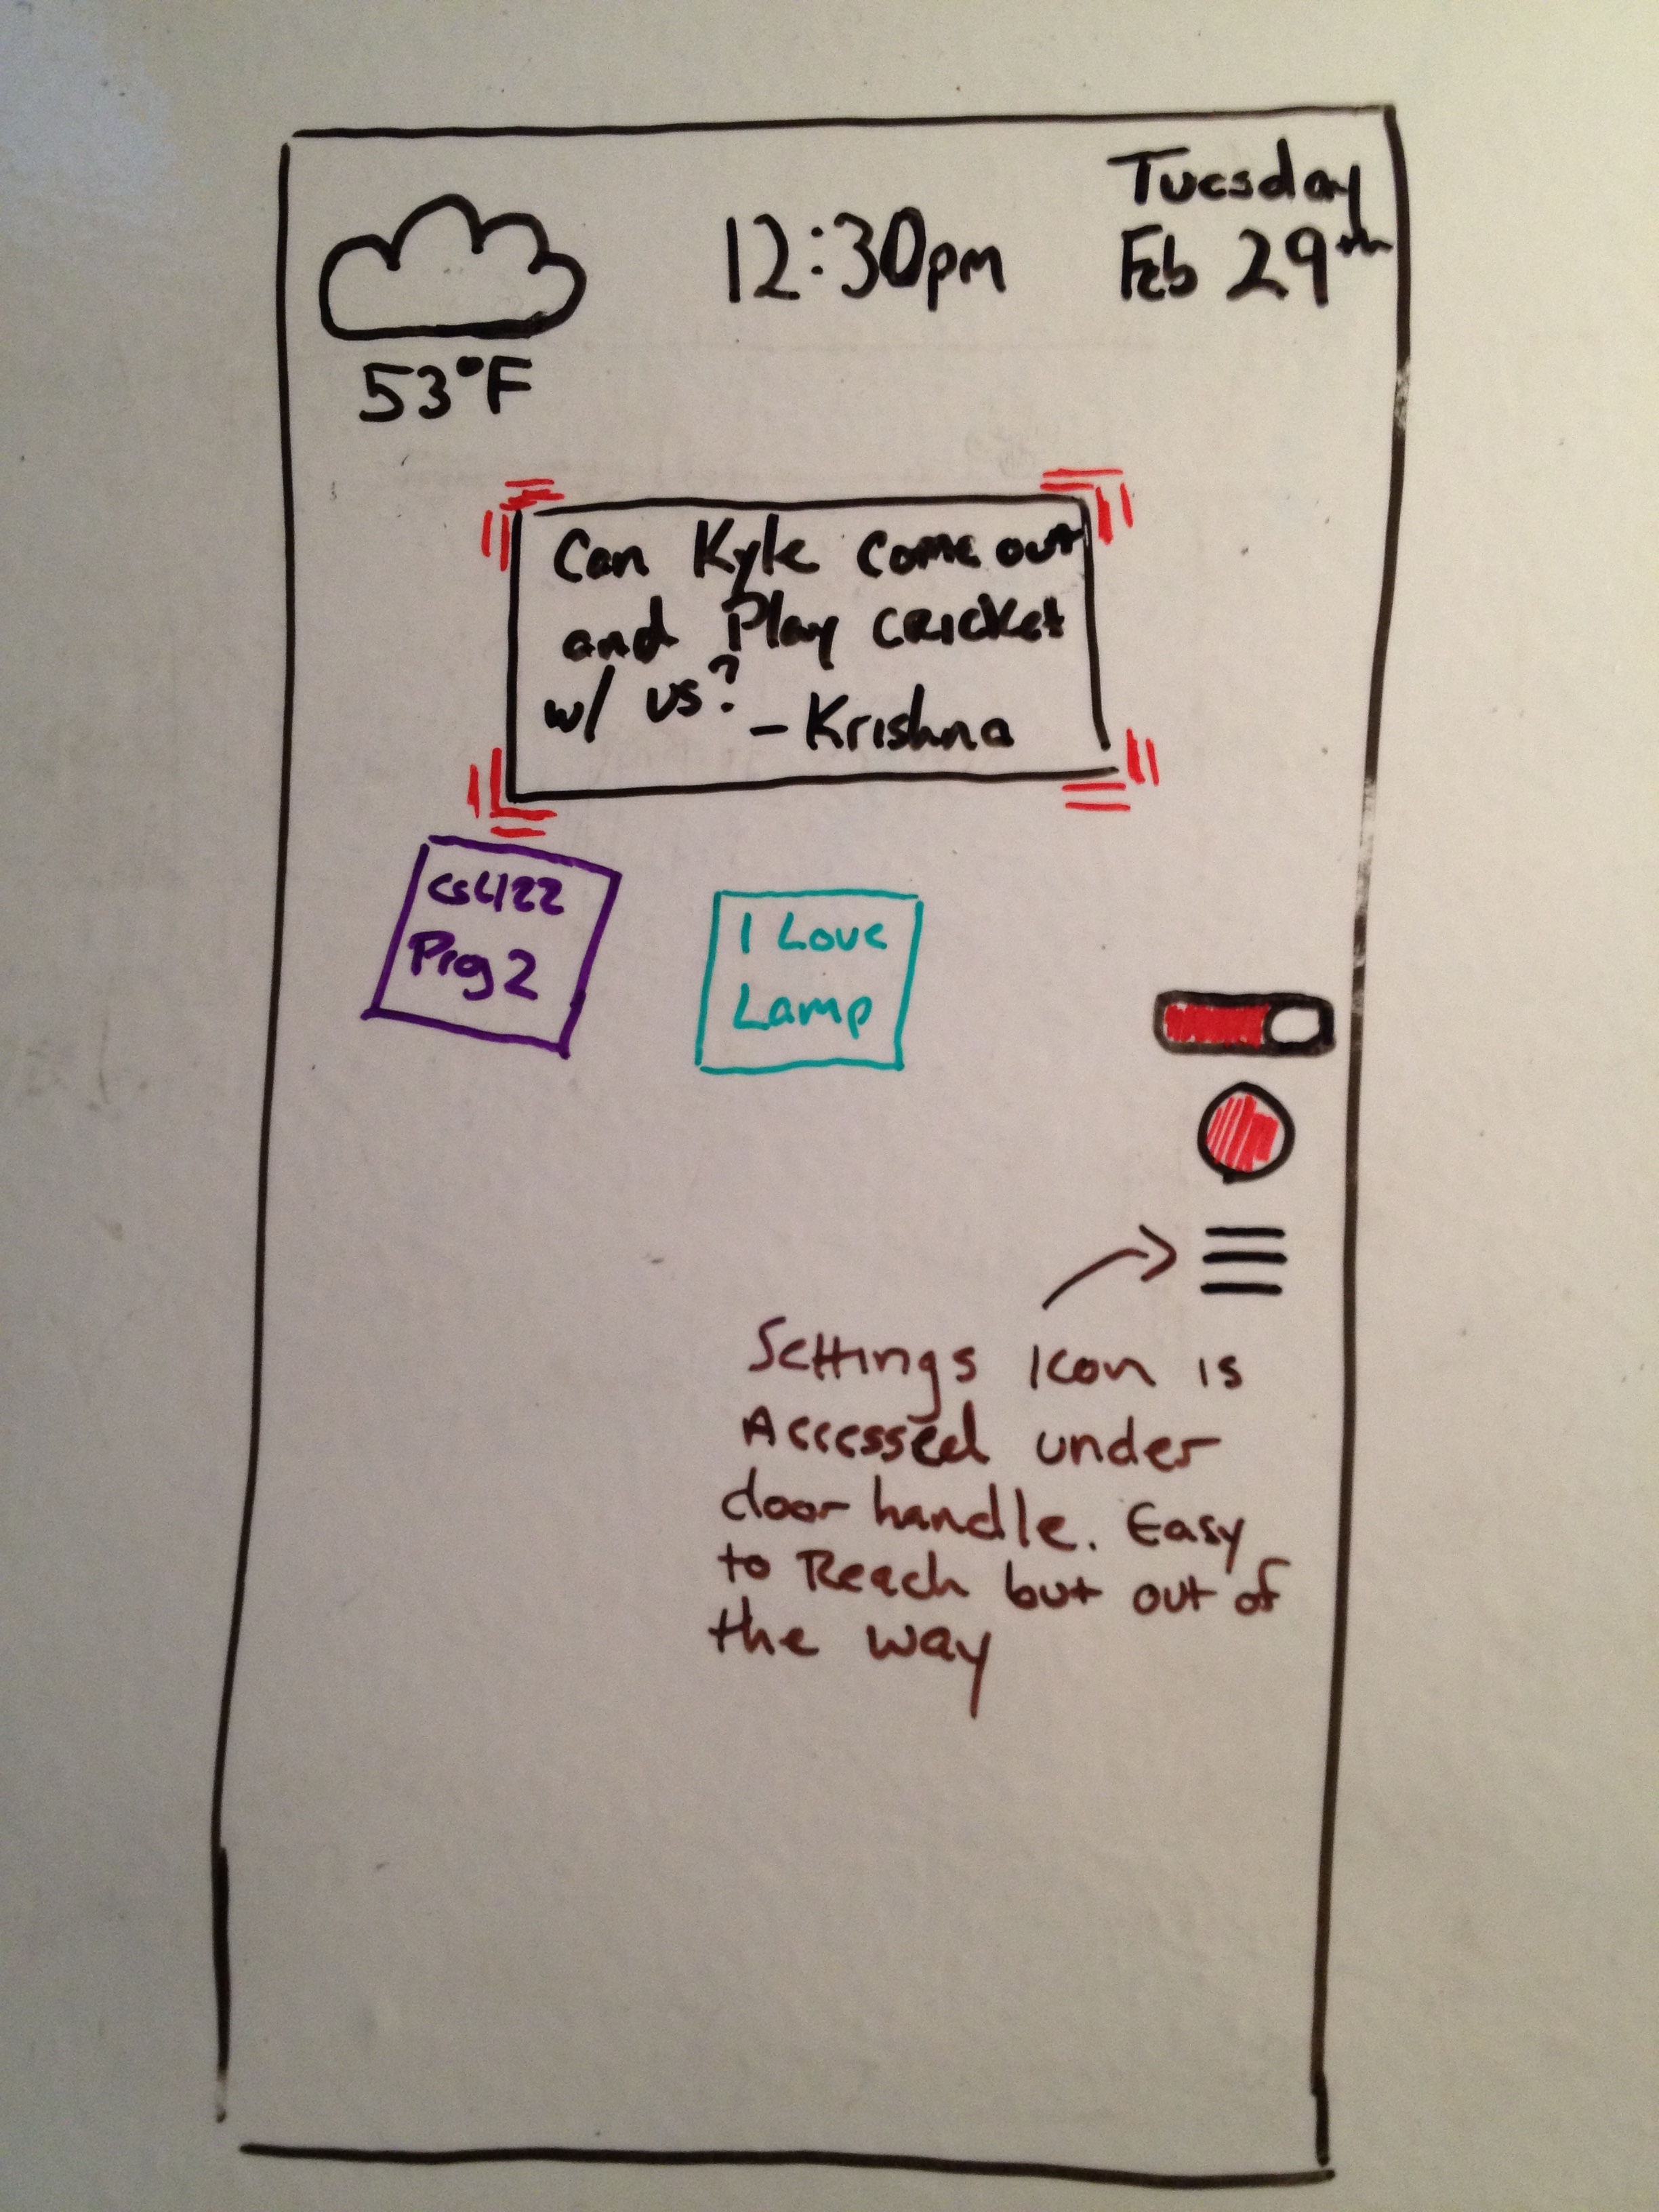 Tuesday
Feb 29th
12:30pm
53°F
Can Kyle come out
and Play cricket
w/ us?
- Krishna
cs422
Prog 2
I Love
Lamp
Settings Icon is
Accessed under
door handle. Easy
to Reach but out of
the way